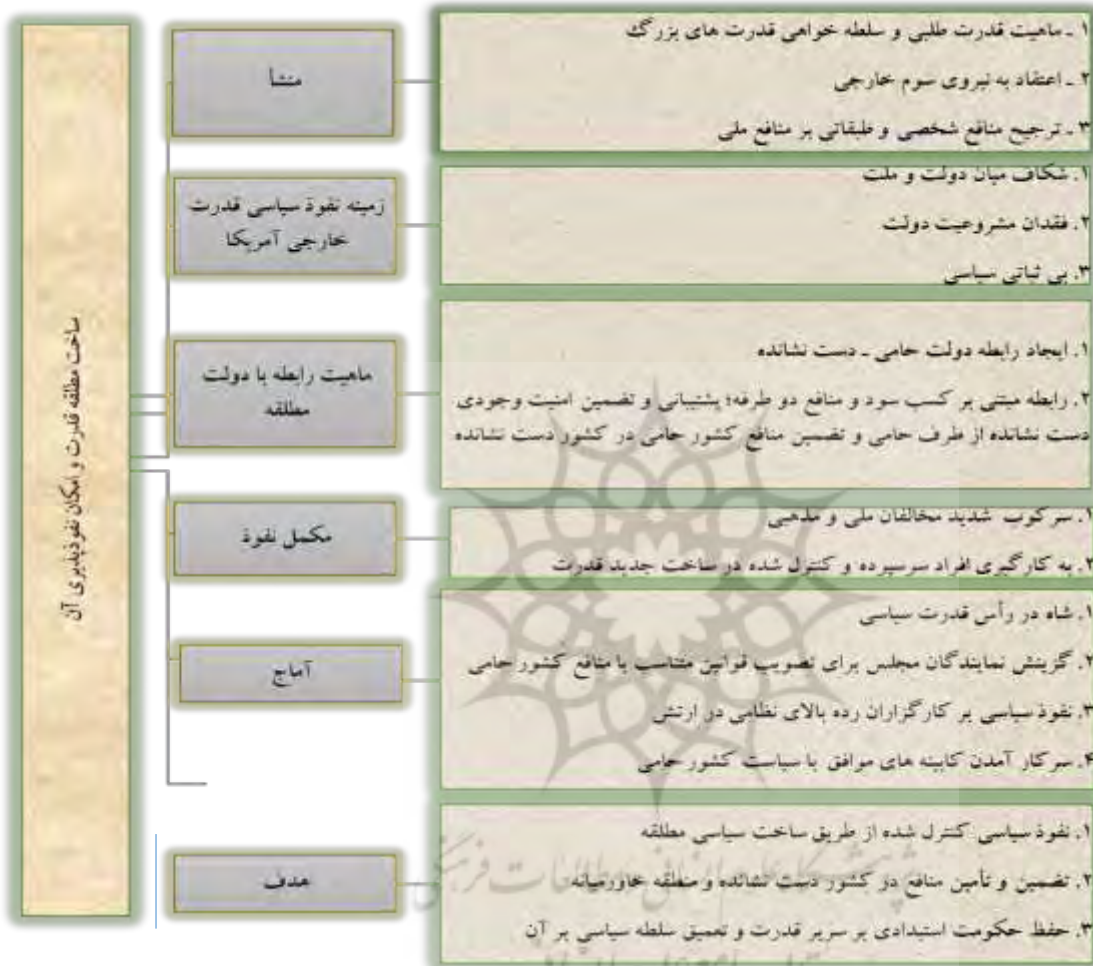 ساخت مطلقه قدرت و امکان نفوذپذیری آن
منشأ
۱ ـ ماهیت قدرت طلبی و سلطه خواهی قدرت های بزرگ
۲ ـ اعتقاد به نیروی سوم خارجی
۳ ـ ترجیح منافع شخصی و طبقاتی بر منافع ملی
زمینه نفوذ سیاسی قدرت
خارجی آمریکا
۱. شکاف میان دولت و ملت
۲. فقدان مشروعیت دولت
۳. بی ثباتی سیاسی
ماهیت رابطه با دولت
مطلقه
۱. ایجاد رابطه دولت حامی ـ دست نشانده
۲. رابطه مبتنی بر کسب سود و منافع دو طرفه؛ پشتیبانی و تضمین امنیت وجودی
دست نشانده از طرف حامی و تضمین منافع کشور حامی در کشور دست نشانده
مکمل نفوذ
۱. سرکوب شدید مخالفان ملی و مذهبی
۲. به کارگیری افراد سرسپرده و کنترل شده در ساخت جدید قدرت
آماج
۱. شاه در رأس قدرت سیاسی
۲. گزینش نمایندگان مجلس برای تصویب قوانین متناسب با منافع کشور حامی
۳. نفوذ سیاسی بر کارگزاران رده بالای نظامی در ارتش
۴. سرکار آمدن کابینه های موافق با سیاست کشور حامی
هدف
۱. نفوذ سیاسی کنترل شده از طریق ساخت سیاسی مطلقه
۲. تضمین و تأمین منافع در کشور دست نشانده و منطقه خاورمیانه
۳. حفظ حکومت استبدادی بر سریر قدرت و تعمیق سلطه سیاسی بر آن
پژوهشگاه علوم انسانی و مطالعات فرهنگی